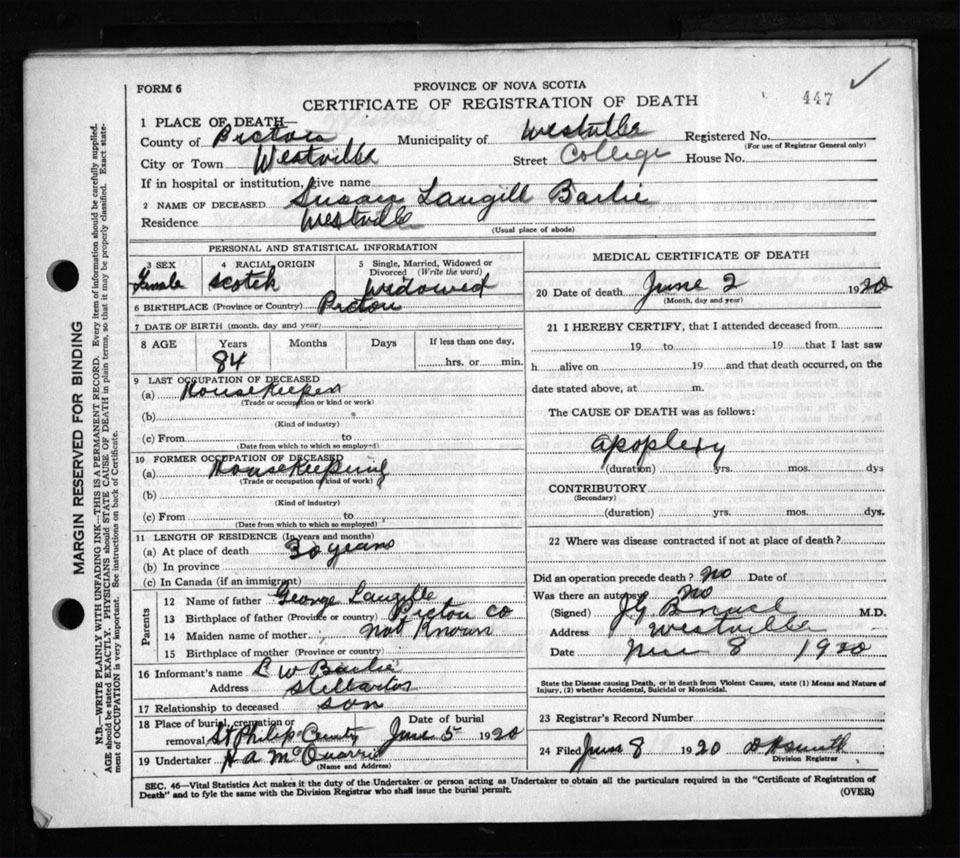 FORM 6
PROVINCE OF NOVA SCOTIA
CERTIFICATE OF REGISTRATION OF DEATH
447
1 PLACE OF DEATH—
County of Pictou Municipality of Westville Registered No.
(For use of Registrar General only)
City or Town Westville Street College House No.
If in hospital or institution, give name
2 NAME OF DECEASED Susan Langill Bailie
Residence Westville
(Usual place of abode)
PERSONAL AND STATISTICAL INFORMATION
3 SEX Female
4 RACIAL ORIGIN Scotch
5 Single, Married, Widowed or Divorced (Write the word) Widowed
6 BIRTHPLACE (Province or Country) Pictou
7 DATE OF BIRTH (month, day and year)
8 AGE Years 84 Months Days If less than one day, hrs. or min.
9 LAST OCCUPATION OF DECEASED
(a) Housekeeper
(Trade or occupation or kind or work)
(b)
(Kind of industry)
(c) From to
(Date from which to which so employed)
10 FORMER OCCUPATION OF DECEASED
(a) Housekeeping
(Trade or occupation or kind of work)
(b)
(Kind of industry)
(c) From to
(Date from which to which so employed)
11 LENGTH OF RESIDENCE (In years and months)
(a) At place of death 30 years
(b) In province
(c) In Canada (if an immigrant)
Parents
12 Name of father George Langille
13 Birthplace of father (Province or country) Pictou Co
14 Maiden name of mother Not Known
15 Birthplace of mother (Province or country)
16 Informant's name W Bailie
Address Stellarton
17 Relationship to deceased son
18 Place of burial, cremation or removal St Philip Date of burial June 5 1920
19 Undertaker H A McQuarrie
(Name and Address)
MEDICAL CERTIFICATE OF DEATH
20 Date of death June 2 1920
(Month, day and year)
21 I HEREBY CERTIFY, that I attended deceased from
19 to 19 that I last saw
h alive on 19 and that death occurred, on the
date stated above, at m.
The CAUSE OF DEATH was as follows:
apoplexy
(duration) yrs. mos. dys
CONTRIBUTORY
(Secondary)
(duration) yrs. mos. dys.
22 Where was disease contracted if not at place of death?
Did an operation precede death? No Date of
Was there an autopsy No
(Signed) M.D.
Address Westville
Date 8 1920
State the Disease causing Death, or in death from Violent Causes, state (1) Means and Nature of Injury, (2) whether Accidental, Suicidal or Homicidal.
23 Registrar's Record Number
24 Filed June 8 1920 Smith
Division Registrar
SEC. 46—Vital Statistics Act makes it the duty of the Undertaker or person acting as Undertaker to obtain all the particulars required in the "Certificate of Registration of
Death" and to fyle the same with the Division Registrar who shall issue the burial permit. (OVER)
MARGIN RESERVED FOR BINDING
N.B.—WRITE PLAINLY WITH UNFADING INK—THIS IS A PERMANENT RECORD. Every item of information should be carefully supplied.
AGE should be stated EXACTLY. PHYSICIANS should STATE CAUSE OF DEATH in plain terms, so that it may be properly classified. Exact statement of OCCUPATION is very important. See instructions on back of Certificate.